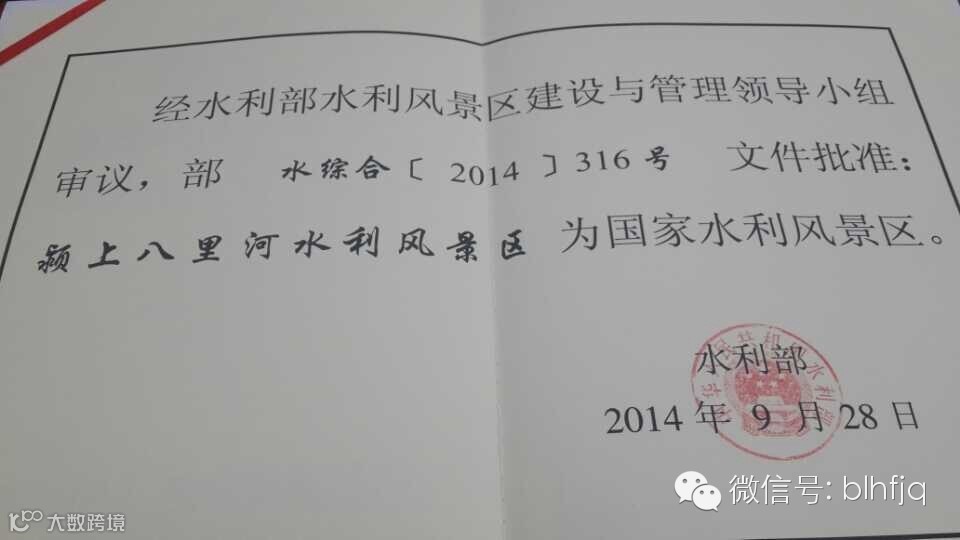 经水利部水利风景区建设与管理领导小组
审议，部 水综合〔 2014 〕316 号 文件批准：
颍上八里河水利风景区 为国家水利风景区。
水利部
2014 年 9 月 28 日
中华人民共和国水利部
微信号: blhfjq
大数跨境